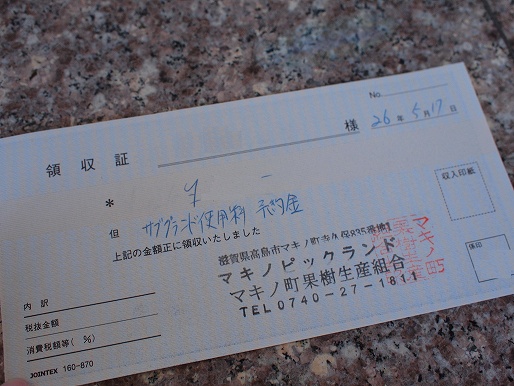 No.
領収証 様 26年5月17日
* ¥ -
但 サブグランド使用料 予約金
上記の金額正に領収いたしました
収入印紙
滋賀県高島市マキノ町寺久保835番地1
マキノピックランド
マキノ町果樹生産組合
TEL 0740-27-1811
係印
内訳
税抜金額
消費税額等( %)
JOINTEX 160-870